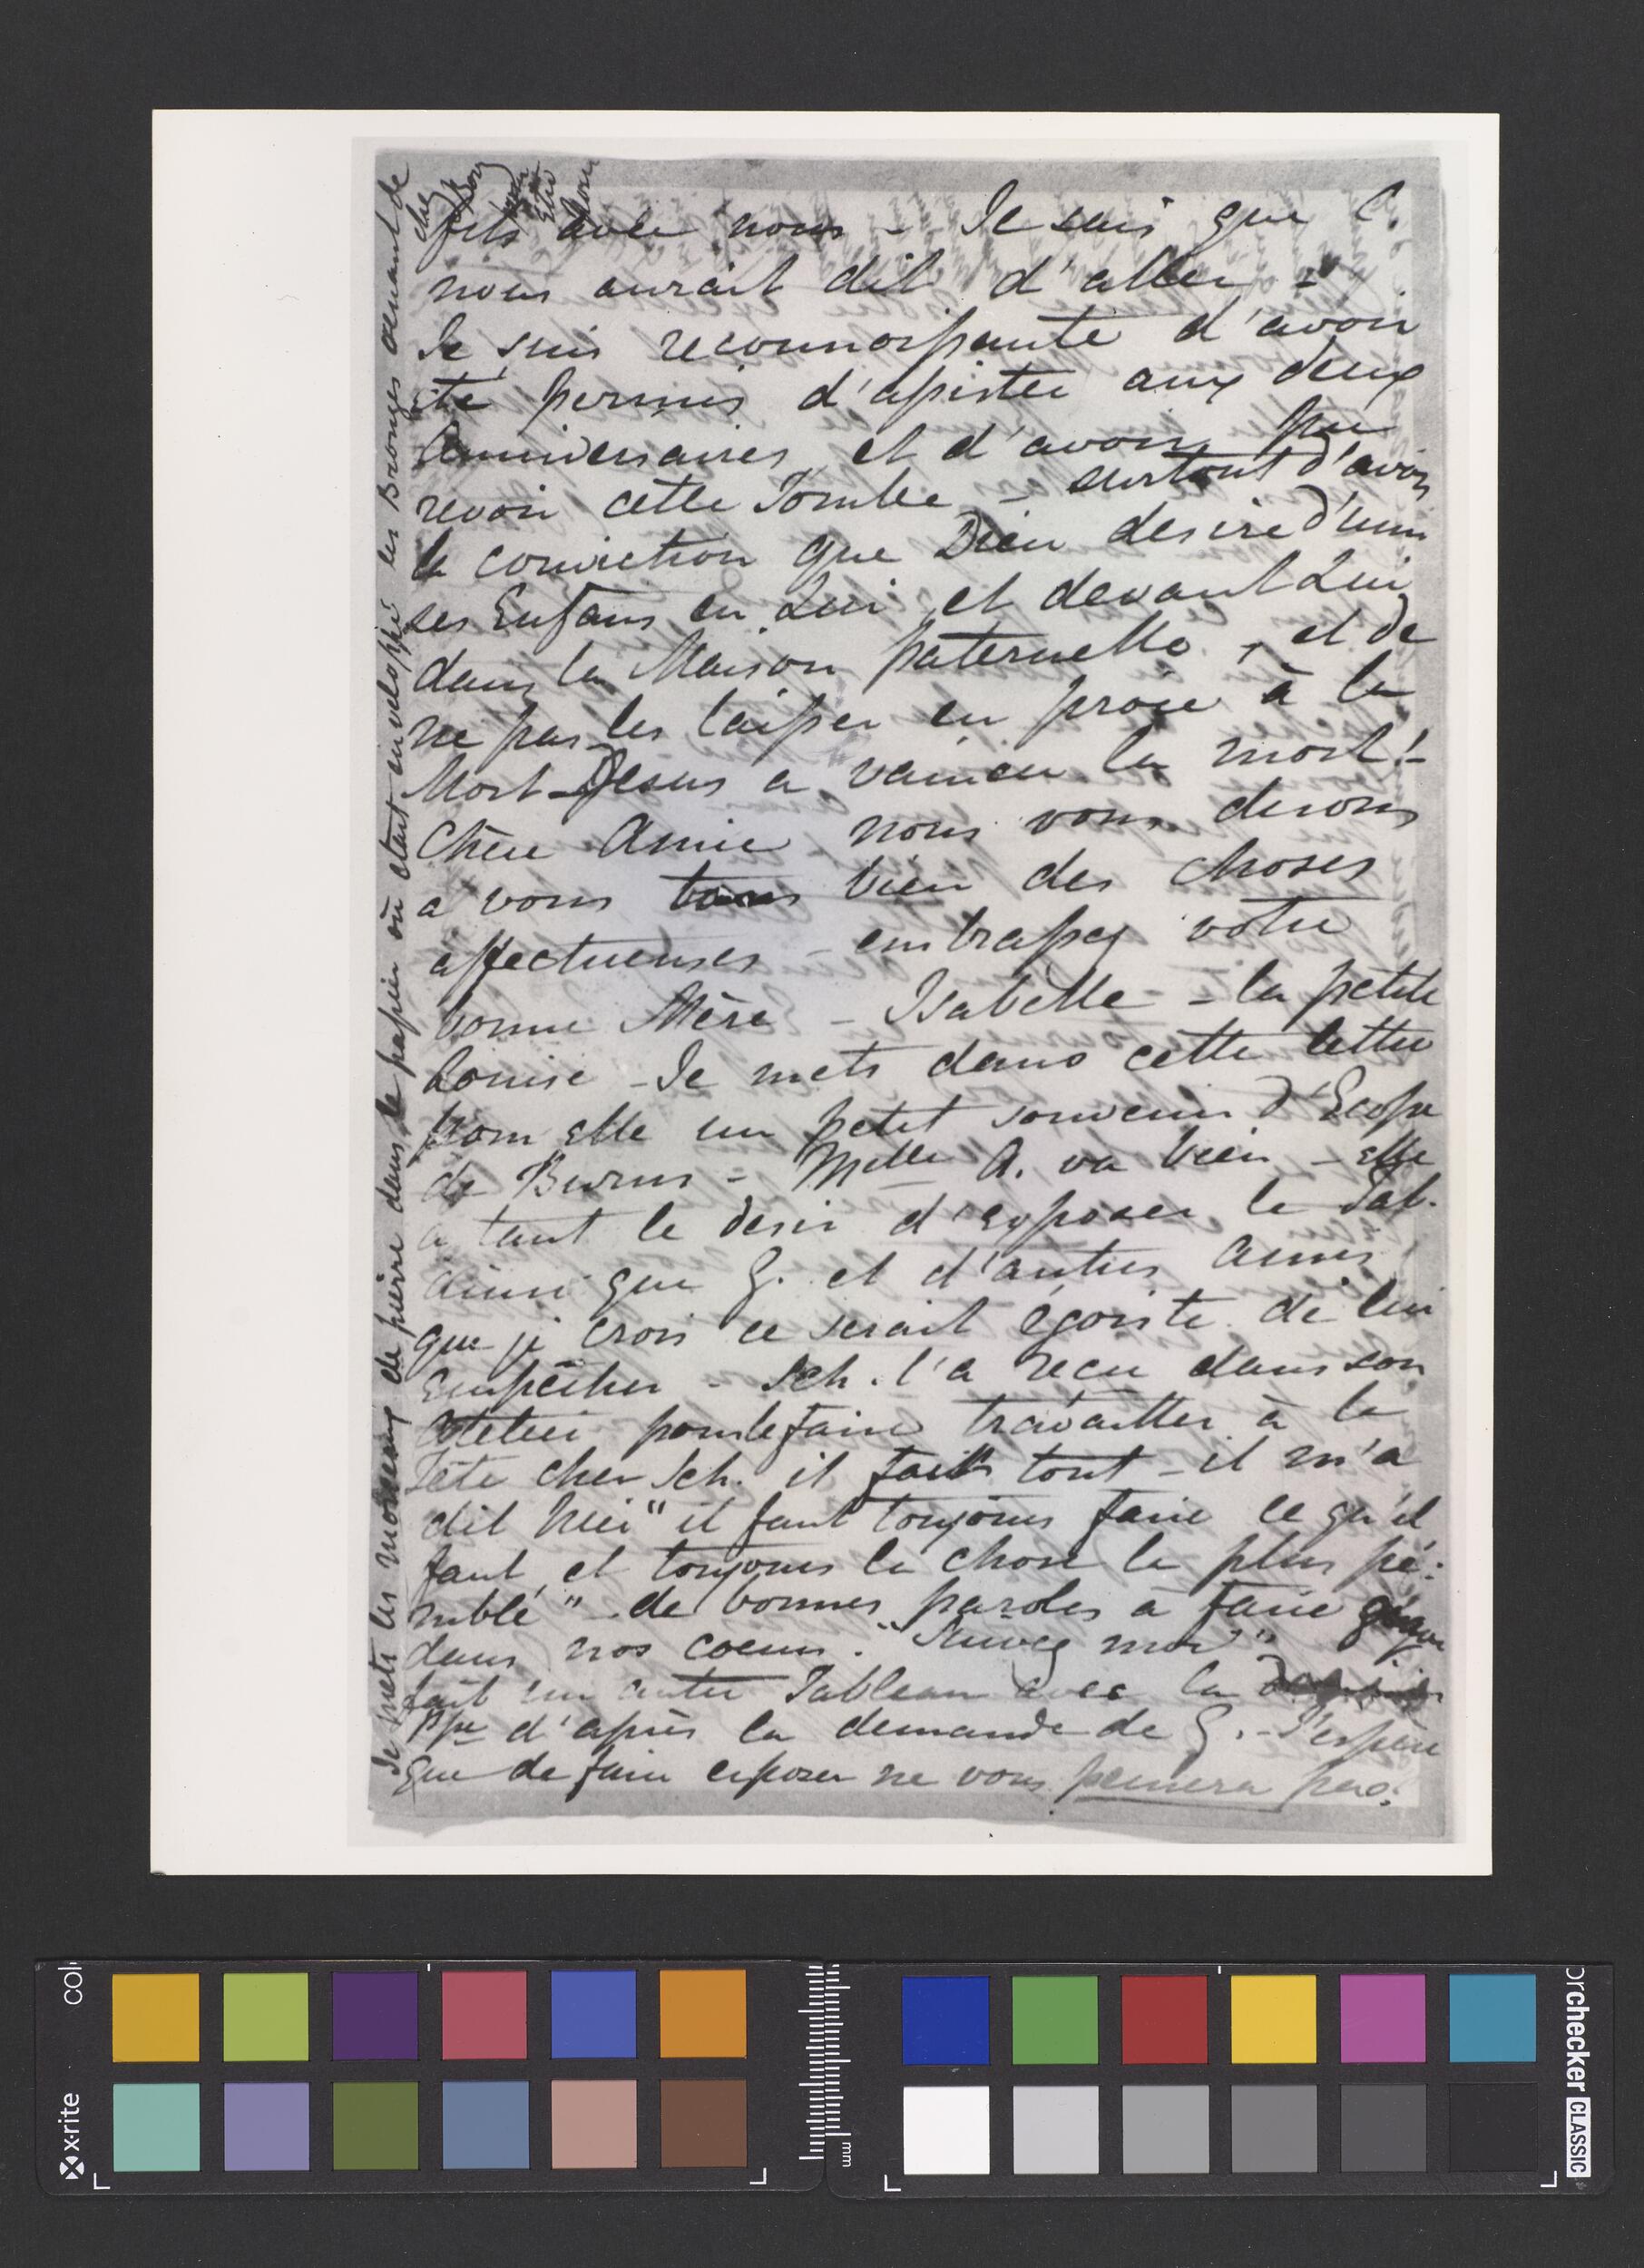 fils avec nous – Je sais que C.
nous aurait dit d'aller –
Je suis reconnoissante d'avoir
été permis d'assister aux deux
Anniversaires et d'avoir pu
revoir cette Tombe – surtout d'avoir
la conviction que Dieu desire d'unir
ses Enfans en Lui et devant Lui
dans la Maison paternelle, et de
ne pas les laisser en proie à la
Mort – Jesus a vaincu la mort! –
Chère Amie nous vous disons
a vous tous bien des choses
affectueuses – embrassez votre
bonne Mère – Isabelle – la petite
Louise – Je mets dans cette lettre
pour elle un petit souvenir d'Ecosse
de Burns – Melle A. va bien – elle
a tant le desir d'exposer le Tab.
ainsi que G. et d'autres amis
que je crois ce serait égoiste de lui
empêcher – Sch. l'a reçu dans son
Atelier pour le faire travailler à la
Tête cher Sch. il fait tout – il m'a
dit hier "il faut toujours faire ce qu'il
faut et toujours la chose la plus pé-
nible" – de bonnes paroles à faire
dans nos coeurs. "Suivez moi"
fait un autre Tableau avec la
Psse d'après la demande de G. – J'espère
que de faire exposer ne vous peinera pas.
Je mets les morceaux de pierre dans le papier où etait enveloppé les Bronzes venant de
chez